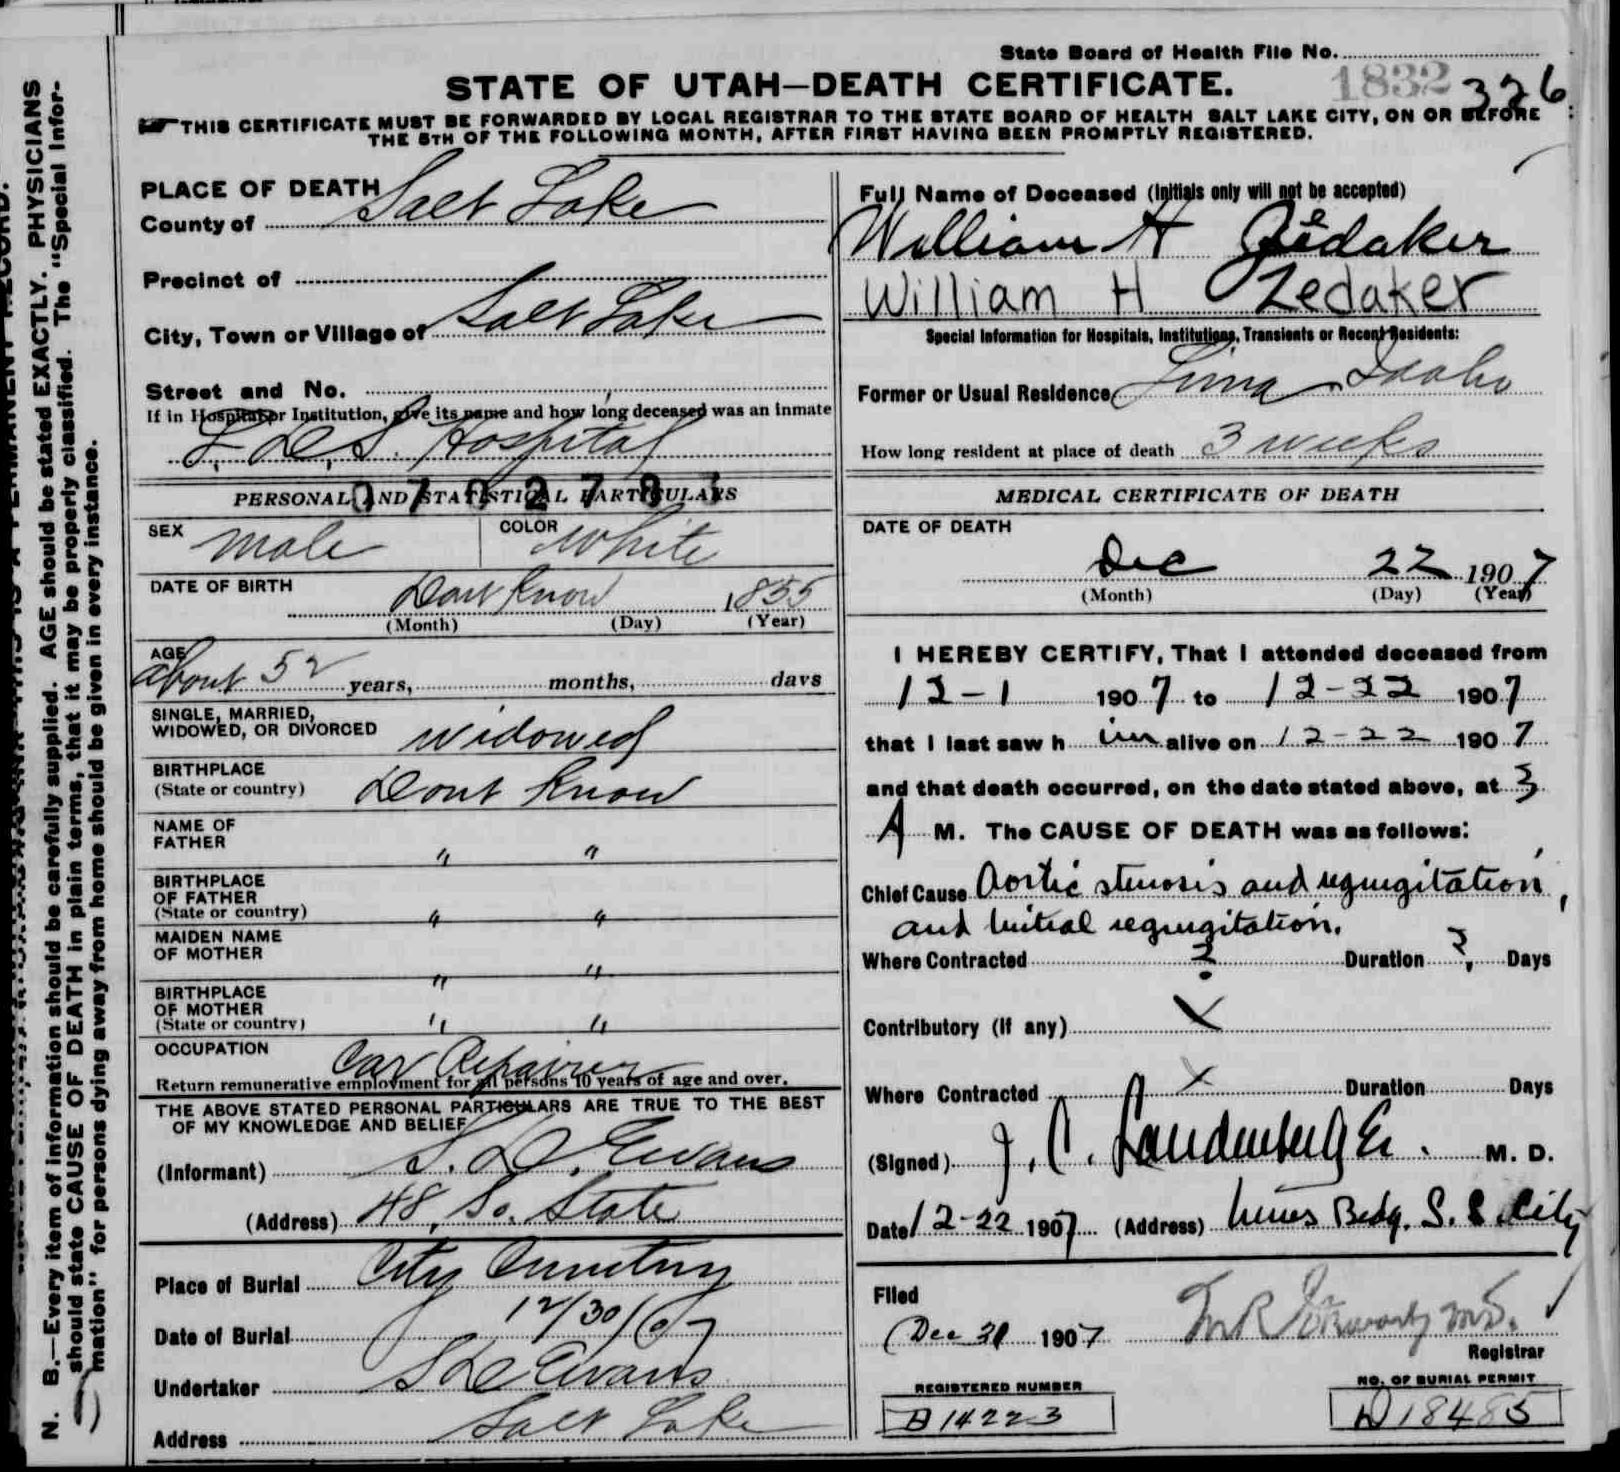 State Board of Health File No.
1832 326
STATE OF UTAH—DEATH CERTIFICATE.
THIS CERTIFICATE MUST BE FORWARDED BY LOCAL REGISTRAR TO THE STATE BOARD OF HEALTH SALT LAKE CITY, ON OR BEFORE
THE 5TH OF THE FOLLOWING MONTH, AFTER FIRST HAVING BEEN PROMPTLY REGISTERED.
N. B.—Every item of information should be carefully supplied. AGE should be stated EXACTLY. PHYSICIANS
should state CAUSE OF DEATH in plain terms, that it may be properly classified. The "Special Infor-
mation" for persons dying away from home should be given in every instance.
PLACE OF DEATH
County of Salt Lake
Precinct of
City, Town or Village of Salt Lake
Street and No.
If in Hospital or Institution, give its name and how long deceased was an inmate
L. D. S. Hospital
PERSONAL AND STATISTICAL PARTICULARS
SEX Male COLOR White
DATE OF BIRTH Dont Know 1855
(Month) (Day) (Year)
AGE
about 52 years, months, days
SINGLE, MARRIED,
WIDOWED, OR DIVORCED Widowed
BIRTHPLACE
(State or country) Dont Know
NAME OF
FATHER " "
BIRTHPLACE
OF FATHER
(State or country) " "
MAIDEN NAME
OF MOTHER " "
BIRTHPLACE
OF MOTHER
(State or country) " "
OCCUPATION Car Repairer
Return remunerative employment for all persons 10 years of age and over.
THE ABOVE STATED PERSONAL PARTICULARS ARE TRUE TO THE BEST
OF MY KNOWLEDGE AND BELIEF
(Informant) S. D. Evans
(Address) 48, So. State
Place of Burial City Cemetery
Date of Burial 12/30/07
Undertaker S D Evans
Address Salt Lake
Full Name of Deceased (Initials only will not be accepted)
William H Zedaker
William H Zedaker
Special Information for Hospitals, Institutions, Transients or Recent Residents:
Former or Usual Residence Lima, Idaho
How long resident at place of death 3 weeks
MEDICAL CERTIFICATE OF DEATH
DATE OF DEATH
Dec 22 1907
(Month) (Day) (Year)
I HEREBY CERTIFY, That I attended deceased from
12-1 1907 to 12-22 1907
that I last saw him alive on 12-22 1907
and that death occurred, on the date stated above, at 3
A M. The CAUSE OF DEATH was as follows:
Chief Cause Aortic stenosis and regurgitation,
and Mitral regurgitation.
Where Contracted ? Duration ? Days
Contributory (if any) X
Where Contracted X Duration Days
(Signed) J. C. Landenberger. M. D.
Date 12-22 1907 (Address) S. L. City
Filed
Dec 31 1907
Registrar
REGISTERED NUMBER
D 14223
NO. OF BURIAL PERMIT
D 18485